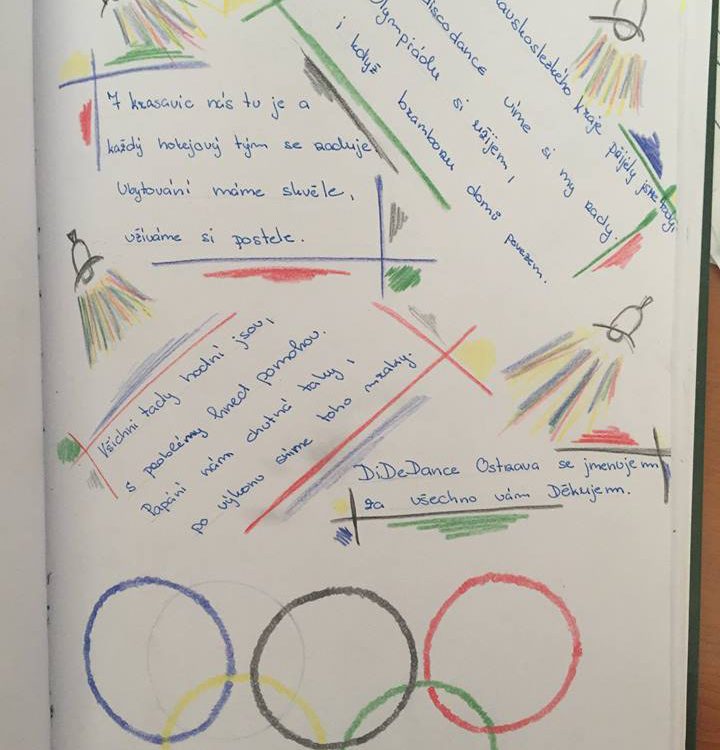 avskoslezkého kraje přijely jsme tady,
discodance víme si my rady.
Olympiádu si užijem,
i když bramboru domů povezem.
7 krasavic nás tu je a
každý hokejový tým se raduje
Ubytování máme skvěle,
užíváme si postele.
Všichni tady hodní jsou,
s problémy hned pomohou.
Papání nám chutná taky,
po výkonu sníme toho mraky.
DiDeDance Ostrava se jmenujem
za všechno vám Děkujem.